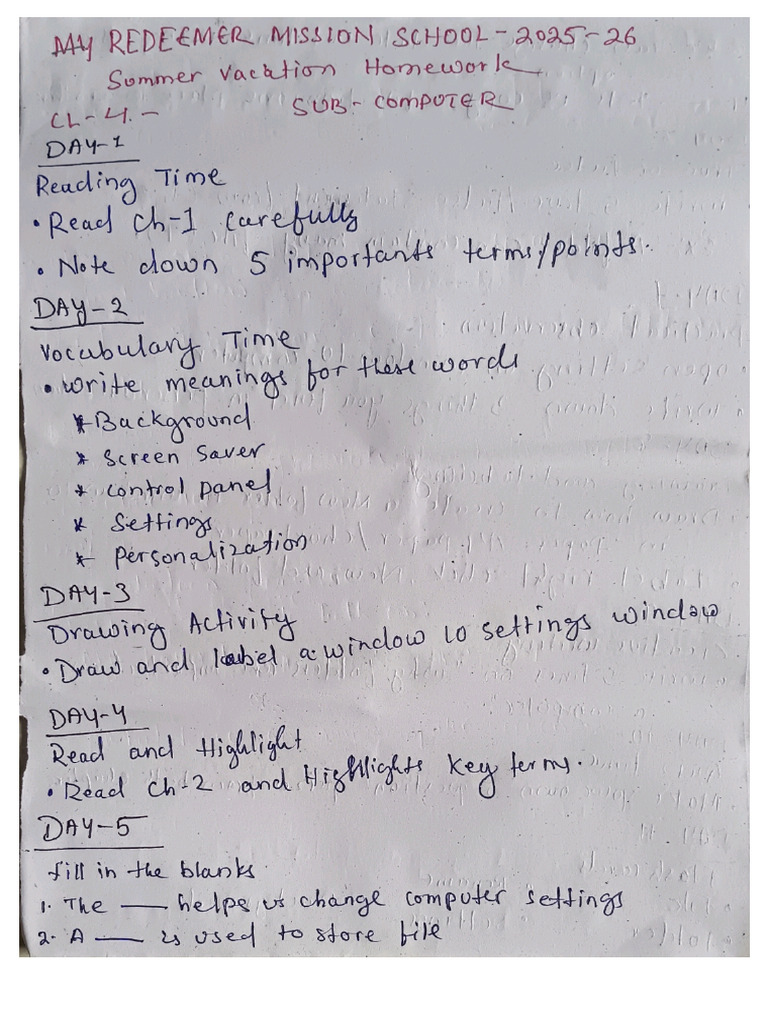 MY REDEEMER MISSION SCHOOL - 2025-26
Summer Vacation Homework
CL-4.- SUB- COMPUTER
DAY-1
Reading Time
• Read Ch-1 carefully
• Note down 5 importants terms/points.
DAY-2
Vocabulary Time
• Write meanings for these words
* Background
* Screen Saver
* Control panel
* Settings
* Personalization
DAY-3
Drawing Activity
• Draw and label a window 10 settings window
DAY-4
Read and Highlight
• Read Ch-2 and Highlights Key terms.
DAY-5
Fill in the blanks
1. The ___ helps us change computer settings
2. A ___ is used to store file